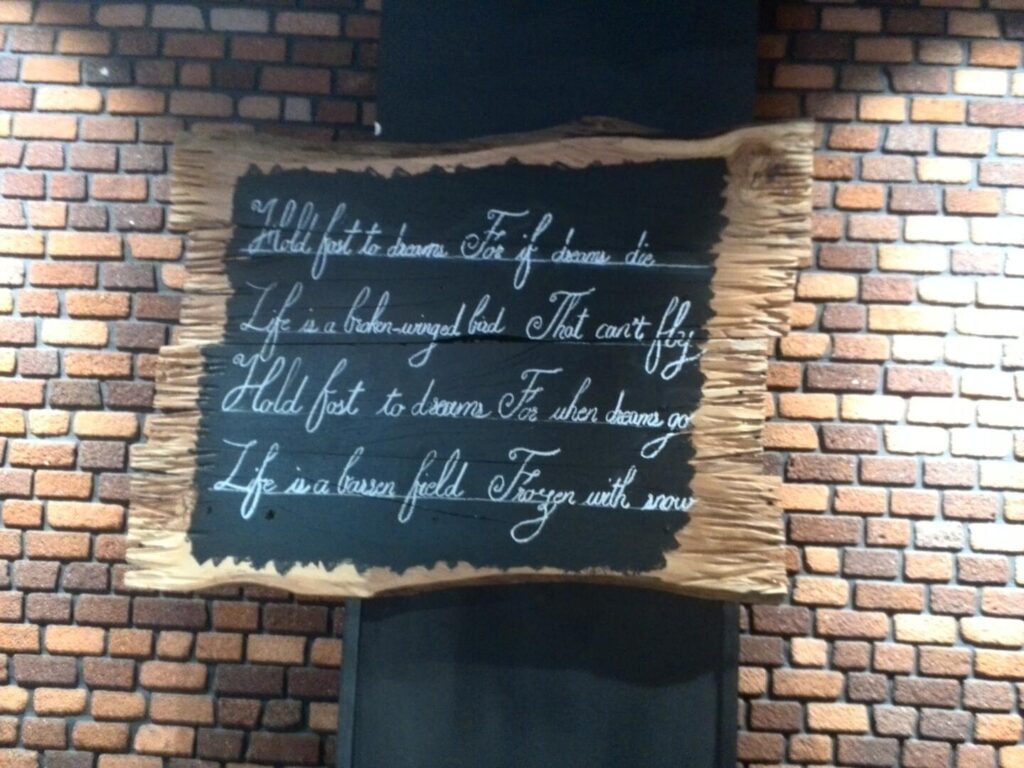 Hold fast to dreams For if dreams die
Life is a broken-winged bird That can't fly
Hold fast to dreams For when dreams go
Life is a barren field Frozen with snow